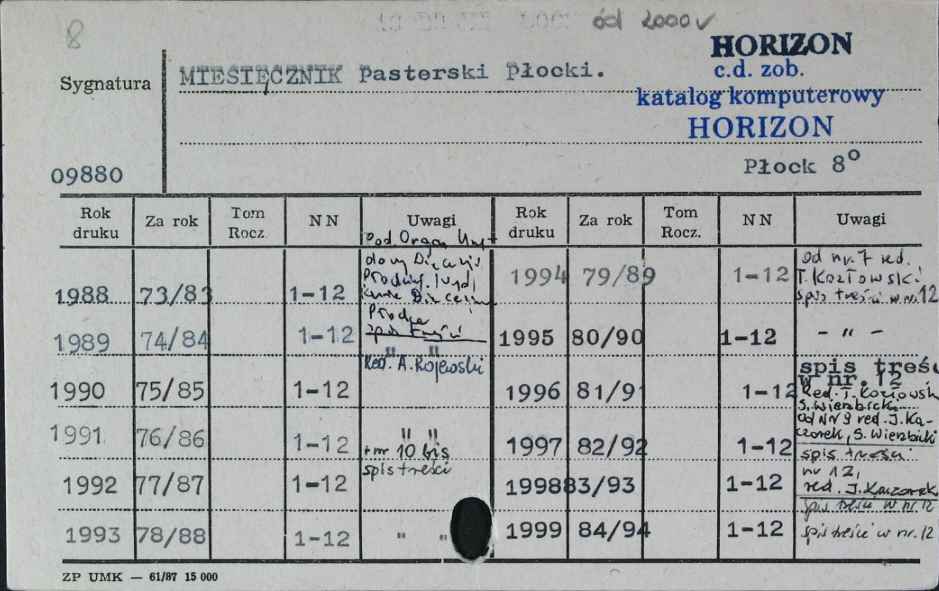 8
od 2000
HORIZON
c.d. zob.
katalog komputerowy
HORIZON
Sygnatura
MIESIĘCZNIK Pasterski Płocki.
09880
Płock 8°
Rok druku Za rok Tom Rocz. NN Uwagi Rok druku Za rok Tom Rocz. NN Uwagi
1988 73/83 1-12
1989 74/84 1-12
spis treści
1990 75/85 1-12 Red. A. Rojewski
1991 76/86 1-12 " "
+ nr 10 bis
spis treści
1992 77/87 1-12
1993 78/88 1-12 " "
1994 79/89 1-12 Od nr. 7 red.
T. Kozłowski
spis treści w nr. 12
1995 80/90 1-12 - " -
1996 81/91 1-12 spis treśc
w nr. 12
Red. T. Kozłowsk
S. Wierzbick
od NN 9 red. J. Ka-
czorek, S. Wierzbicki
1997 82/92 1-12 spis treści
nr 12,
red. J. Kaczorek
1998 83/93 1-12 spis treści w nr. 12
1999 84/94 1-12 spis treści w nr. 12
ZP UMK — 61/87 15 000